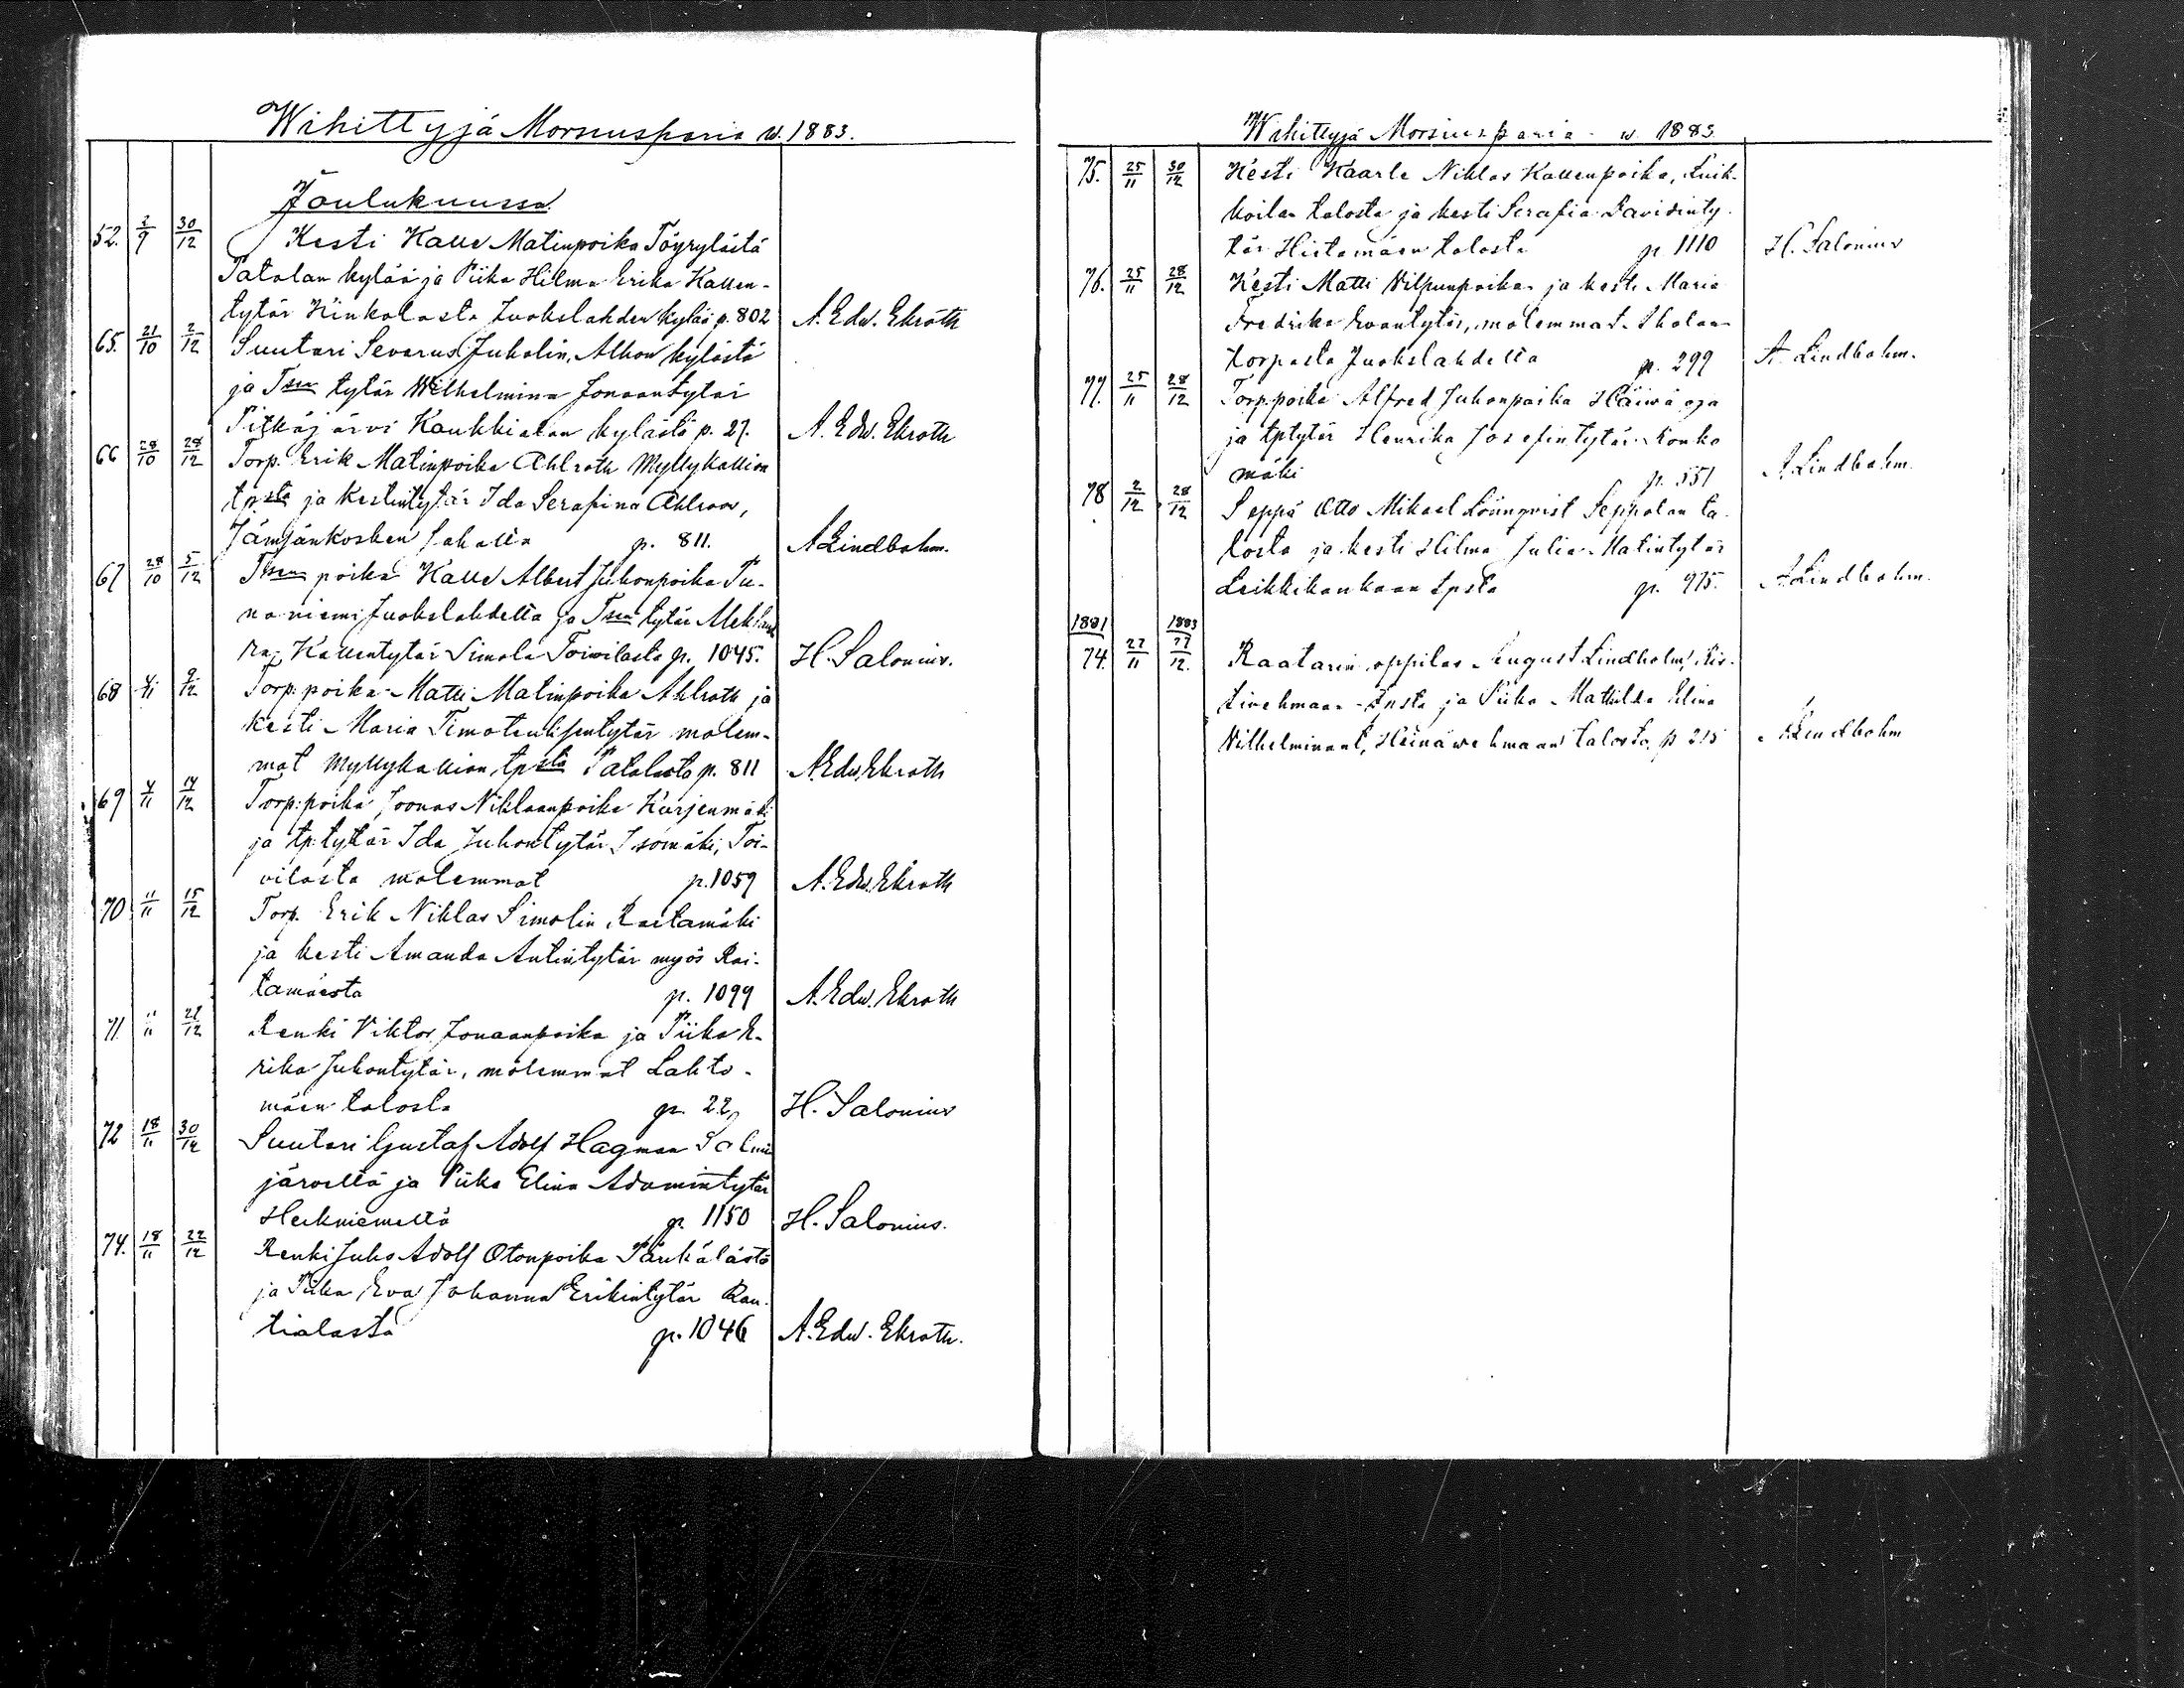 Wihittyjä Morsiuspario w. 1883.
Joulukuussa
52. 2/9 30/12 Kesti Kalle Matinpoika Töyrylästä
Patolan kylää ja Piika Hilma Erika Kallen-
tytär Hinkolasta Juokslahden kylää p. 802 A. Edw. Ekroth
65. 21/10 2/12 Suutari Severus Juholin, Alhon kylästä
ja Tsen tytär Wilhelmina Jonaantytär
Pitkäjärvi Kaukkialan kylästä p. 27. A. Edw. Ekroth
66 28/10 28/12 Torp. Erik Matinpoika Ahlroth Myllykallion
tp.sta ja Kestintytär Ida Serafina Ahlroos,
Jämsänkosken sahalta p. 811. A Lindbohm.
67 28/10 5/12 Tsen poika Kalle Albert Juhonpoika Tu-
naniemi Juokslahdelta ja Tsen tytär Aleksand
ra Kallentytär Simola Toivilasta p. 1045. H. Salonius.
68 4/11 9/12 Torp: poika Matti Matinpoika Ahlroth ja
kesti Maria Timoteuksentytär molem-
mat Myllykallion tpsta Patalasta p. 811 A. Edw. Ekroth
69 4/11 14/12 Torp: poika Joonas Niklaanpoika Kurjenmäki
ja tp. tytär Ida Juhontytär Isomäki, Toi-
vilasta molemmat p. 1059 A. Edw. Ekroth
70 11/11 15/12 Torp. Erik Niklas Simolin Raitamäki
ja kesti Amanda Antintytär myös Rai-
tamäestä p. 1099 A. Edw. Ekroth
71 11/11 21/12 Renki Viktor Jonaanpoika ja Piika E-
rika Juhontytär, molemmat Lahto-
mäen talosta p. 22 H. Salonius
72 18/11 30/12 Suutari Gustaf Adolf Hagman Salmi
järveltä ja Piika Elina Adamintytär
Heikniemeltä p. 1150 H. Salonius.
74. 18/11 22/12 Renki Juho Adolf Otonpoika Pänkälästä
ja Piika Eva Johanna Erikintytär Rau-
tialasta p. 1046 A. Edw. Ekroth.
Wihittyjä Morsiusparia w. 1883.
75. 25/11 30/12 Kesti Kaarle Niklas Kallenpoika, Kuik-
koilan talosta ja kesti Serafia Davidinty-
tär Hietamäen talosta p 1110 H. Salonius
76. 25/11 28/12 Kesti Matti Vilpunpoika ja kesti Maria
Fredrika Evantytär, molemmat Ahola-
korpesta Juokslahdelta p. 299 A Lindbohm.
77. 25/11 28/12 Torp. poika Alfred Juhonpoika Häiwäoja
ja tptytär Henrika Josefintytär Konko
mäki p. 551 A Lindbohm.
78 2/12 28/12 Seppä Otto Mikael Lönnqvist Seppolan ta-
losta ja kesti Hilma Julia Matintytär
Leikkikankaan tpsta p. 975. A Lindbohm.
1881 1883
74. 27/11 27/12. Raatarin oppilas August Lindholm,
ja Piika Mathilda Elina
Vilhelminant, Heinäwehmaan talosta, p 215 A Lindbohm